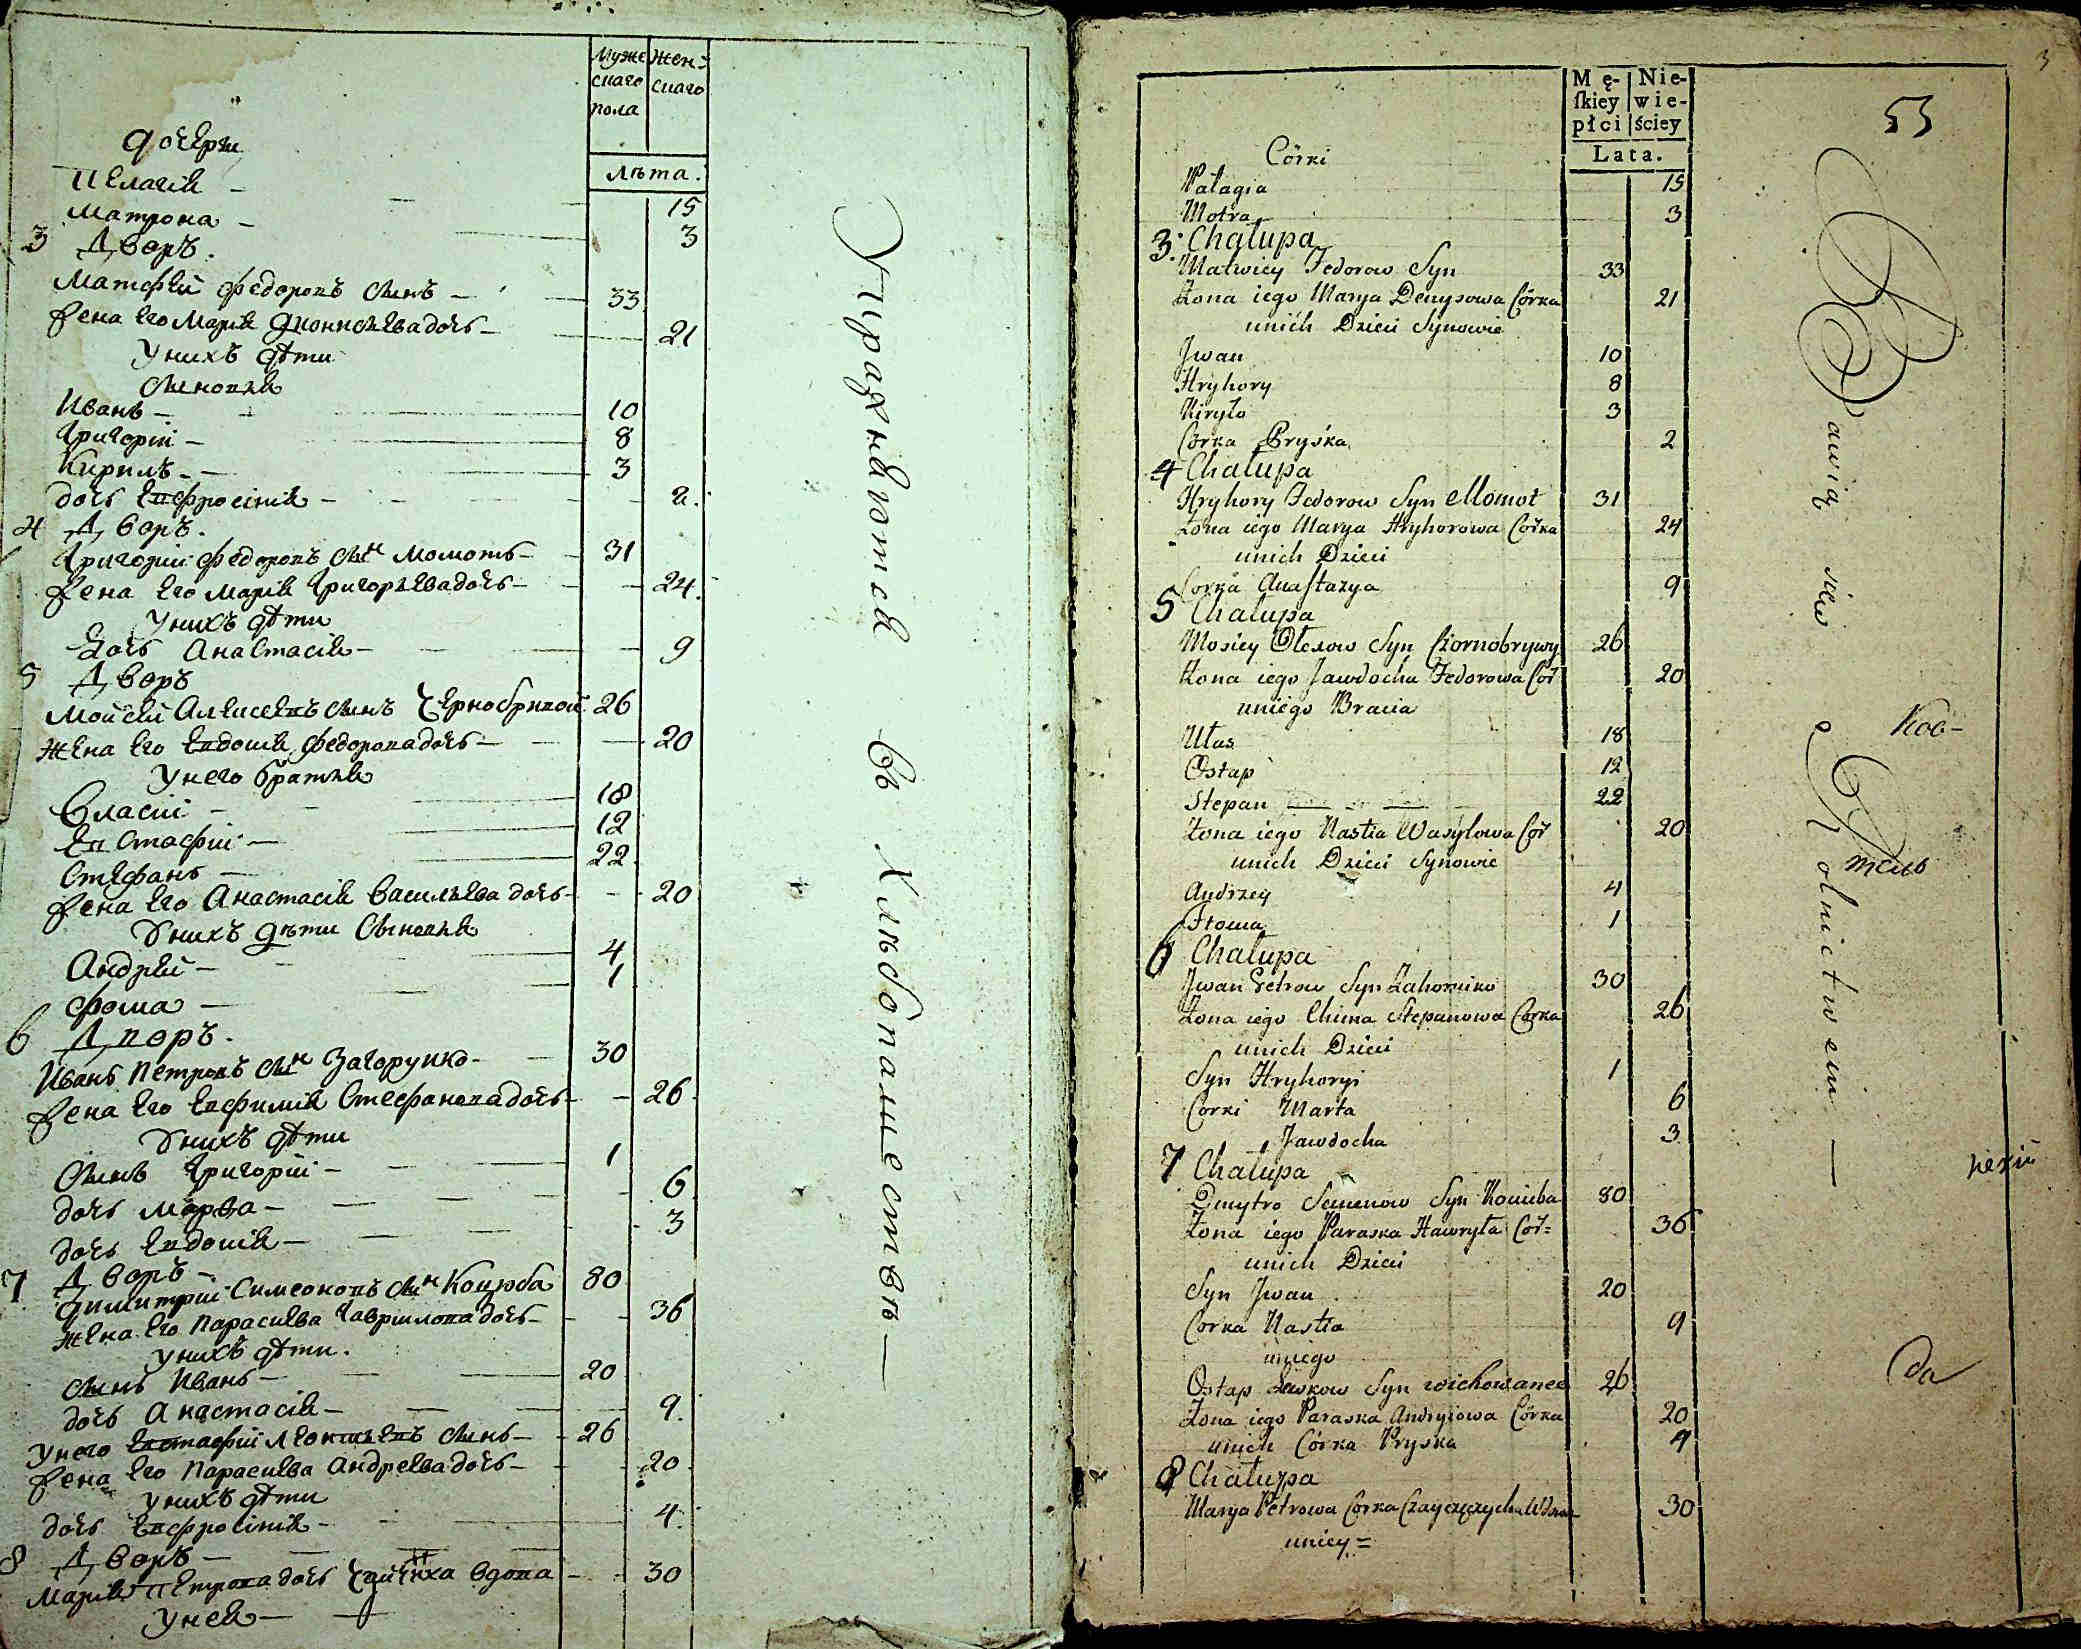 Мужескаго пола
Женскаго
лѣта.
дочери
Пелагія 15
Матрона 3
3 Дворъ.
Матфей Федоровъ сынъ 33
жена его Марія Дионисіева дочь 21
У нихъ дѣти
сыновья
Иванъ 10
Григорій 8
Кирилъ 3
дочь Евфросинія 2.
4 Дворъ.
Григорій Федоровъ сын Момотъ 31
жена его Марія Григорьева дочь 24.
У нихъ дѣти
дочь Анастасія 9
5 Дворъ
Мойсей Алексеевъ сынъ Чернобривой 26
жена его Евдокія Федорова дочь 20
У него братья
Власій 18
Евстафій 12
Стефанъ 22
жена его Анастасія Васильева дочь 20
У нихъ дѣти сыновья
Андрей 4
Фома 1
6 Дворъ.
Иванъ Петровъ сын Загоруико 30
жена его Евфимія Стефанова дочь 26
У нихъ дѣти
сынъ Григорій 1
дочь Марѳа 6
дочь Евдокія 3
7 Дворъ
Димитрій Симеоновъ сын Коцюба 80
жена его Параскева Гаврилова дочь 36
У нихъ дѣти.
сынъ Иванъ 20
дочь Анастасія 9.
У него Евстафій Леонтьевъ сынъ 26
жена его Параскева Андреева дочь 20
У нихъ дѣти
дочь Евфросинія 4.
8 Дворъ
Марія Петрова дочь вдова 30
У нея
Упражняются въ Хлѣбопашествѣ
3
53
Męſkiey płci
Niewieściey
Lata.
Córki
Pałagia 15
Motra 3
3. Chałupa
Matwiey Fedorow Syn 33
Żona iego Marya Denysowa Córka 21
unich Dzieci Synowie
Jwan 10
Hryhory 8
Kiryło 3
Córka Pryśka 2
4 Chałupa
Hryhory Fedorow Syn Momot 31
Żona iego Marya Hryhorowa Córka 24
unich Dzieci
Corka Anastazya 9
5 Chałupa
Mosiey Olexow Syn Czornobrywy 26
Żona iego Jawdocha Fedorowa Cór 20
uniego Bracia
Ułas 18
Ostap 12
Stepan 22
Żona iego Nastia Wasyłowa Cór 20
unich Dzieci Synowie
Andrzey 4
Homa 1
6 Chałupa
Jwan Petrow Syn Zahoruiko 30
Żona iego Chima Stepanowa Corka 26
unich Dzieci
Syn Hryhoryi 1
Corki Marta 6
Jawdocha 3
7 Chałupa
Dmytro Semenow Syn Kociuba 80
Żona iego Paraska Hawryła Cór= 36
unich Dzieci
Syn Jwan 20
Corka Nastia 9
uniego
Ostap Lewkow Syn wichowanec 26
Żona iego Paraska Andryiowa Córka 20
unich Córka Pryska 4
8 Chałupa
Marya Petrowa Corka 30
uniey=
Bawią sie Rolnictwem
Ков-
тель
да